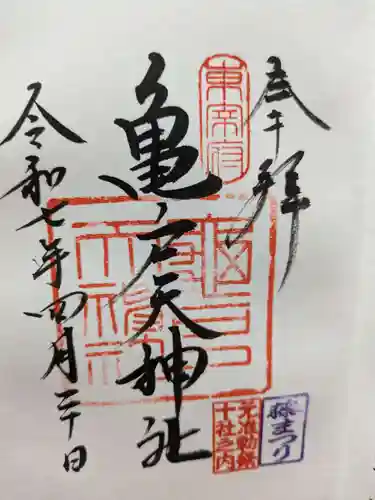 奉拝
東宰府
亀戸天神社
亀戸天神社
令和七年四月二十日
元准勅祭
十社之内
藤まつり